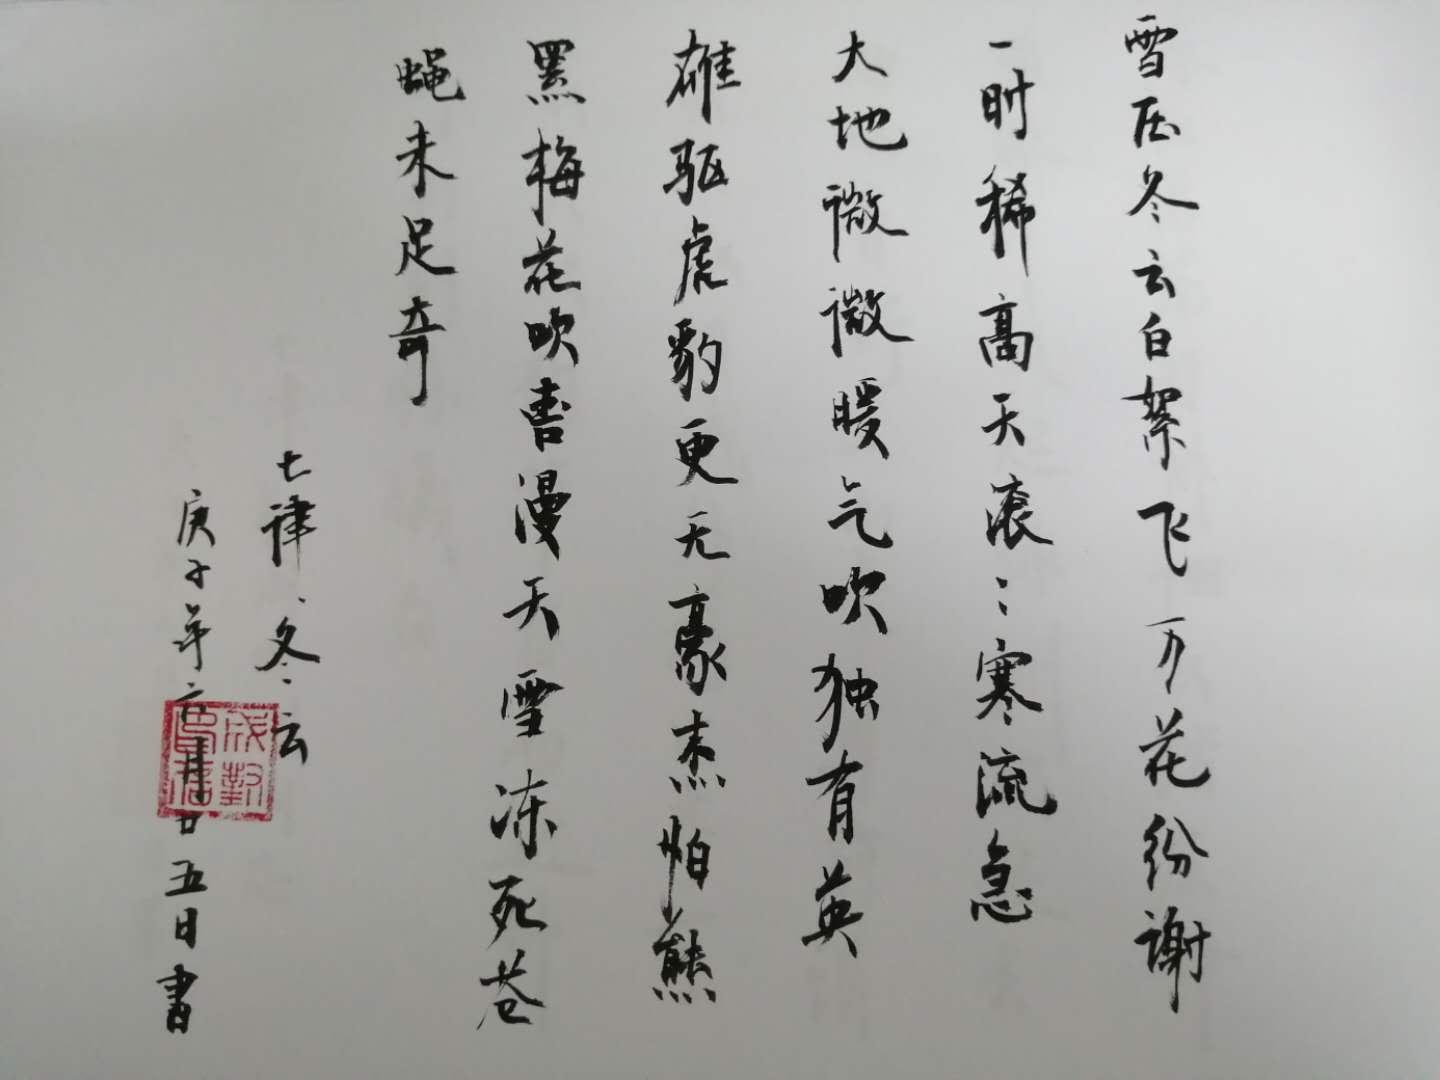 雪压冬云白絮飞万花纷谢
一时稀高天滚〻寒流急
大地微微暖气吹独有英
雄驱虎豹更无豪杰怕熊
罴梅花欢喜漫天雪冻死苍
蝇未足奇
七律、冬云
庚子年六月廿五日書